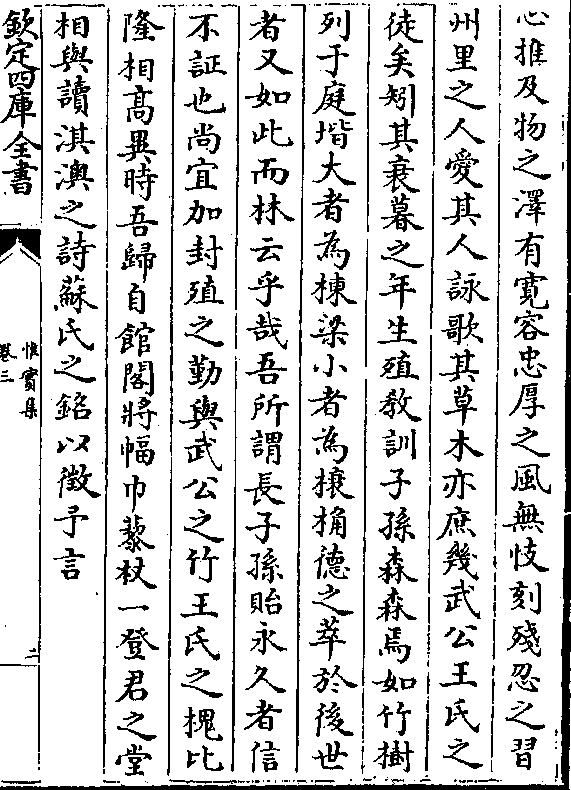 心推及物之澤有寛容忠厚之風無忮刻殘忍之習
州里之人愛其人詠歌其草木亦庶幾武公王氏之
徒矣矧其衰暮之年生殖教訓子孫森森焉如竹樹
列于庭堦大者為棟梁小者為榱桷德之萃於後世
者又如此而林云乎哉吾所謂長子孫貽永久者信
不誣也尚宜加封殖之勤與武公之竹王氏之槐比
隆相髙異時吾歸自館閣將幅巾藜杖一登君之堂
相與讀淇澳之詩蘇氏之銘以徵予言
欽定四庫全書
惟實集
卷三
二